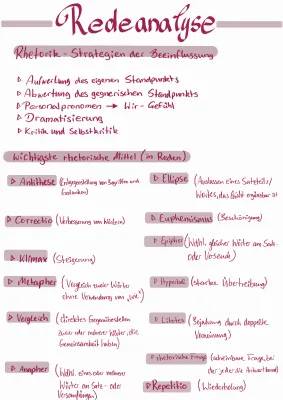 Redeanalyse
Rhetorik - Strategien der Beeinflussung
▷ Aufwertung des eigenen Standpunkts
▷ Abwertung des gegnerischen Standpunkts
▷ Personalpronomen → Wir-Gefühl
▷ Dramatisierung
▷ Kritik und Selbstkritik
Wichtigste rhetorische Mittel (in Reden)
▷ Antithese (Entgegenstellung von Begriffen und
Gedanken)
▷ Correctio (Verbesserung von Wörtern)
▷ Klimax (Steigerung)
▷ Metapher (Vergleich zweier Wörter
ohne Verwendung von „wie")
▷ Vergleich (direktes Gegenüberstellen
zwei oder mehrerer Wörter, die
Gemeinsamkeit haben)
▷ Anapher (Wdhl. eines oder mehrerer
Wörter am Satz- oder
Versanfängen)
▷ Ellipse (Auslassen eines Satzteils/
Wortes, das leicht ergänzbar ist
▷ Euphemismus (Beschönigung)
▷ Epipher (Wdhl. gleicher Wörter am Satz-
oder Versende)
▷ Hyperbel (starke Übertreibung)
▷ Litotes (Bejahung durch doppelte
Verneinung)
▷ rhetorische Frage (scheinbare Frage, bei
der jeder die Antwort kennt)
▷ Repetitio (Wiederholung)